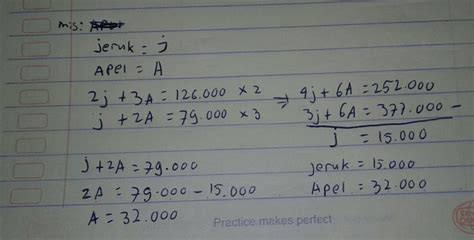 mis:
jeruk = j
Apel = A
2j + 3A = 126.000 × 2 ⇒ 4j + 6A = 252.000
j + 2A = 79.000 × 3 3j + 6A = 377.000 −
j = 15.000
j + 2A = 79.000 jeruk = 15.000
2A = 79.000 - 15.000 Apel = 32.000
A = 32.000
Practice makes perfect